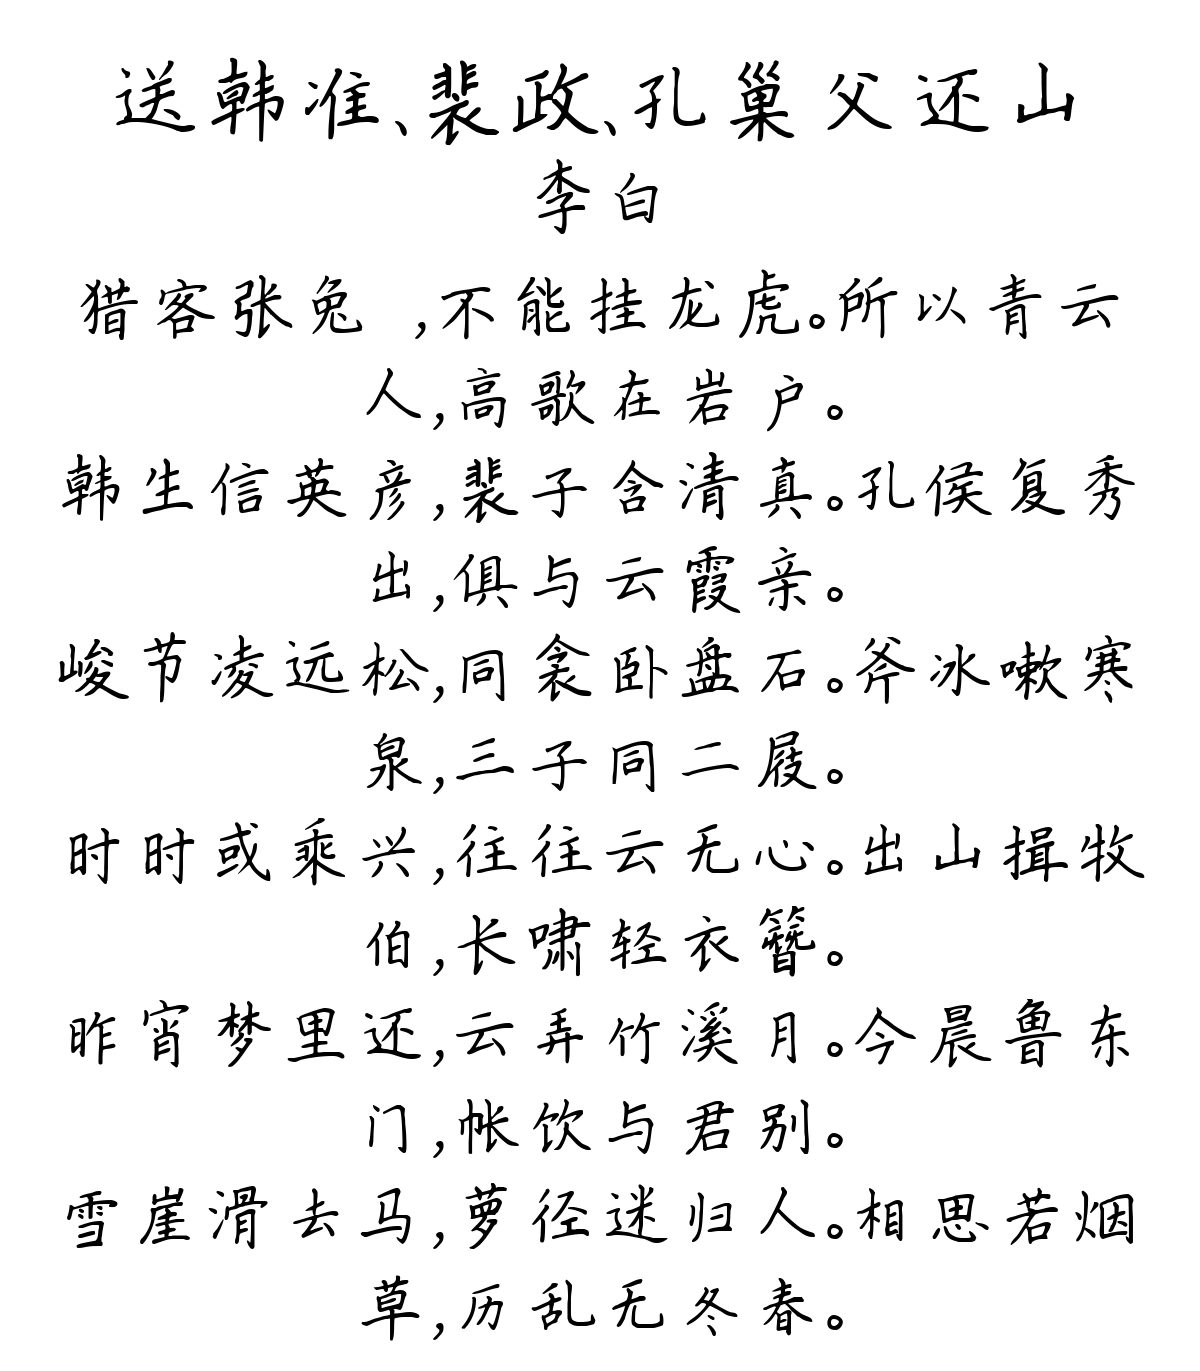 送韩准、裴政、孔巢父还山
李白
猎客张兔 ,不能挂龙虎。所以青云
人,高歌在岩户。
韩生信英彦,裴子含清真。孔侯复秀
出,俱与云霞亲。
峻节凌远松,同衾卧盘石。斧冰嗽寒
泉,三子同二屐。
时时或乘兴,往往云无心。出山揖牧
伯,长啸轻衣簪。
昨宵梦里还,云弄竹溪月。今晨鲁东
门,帐饮与君别。
雪崖滑去马,萝径迷归人。相思若烟
草,历乱无冬春。